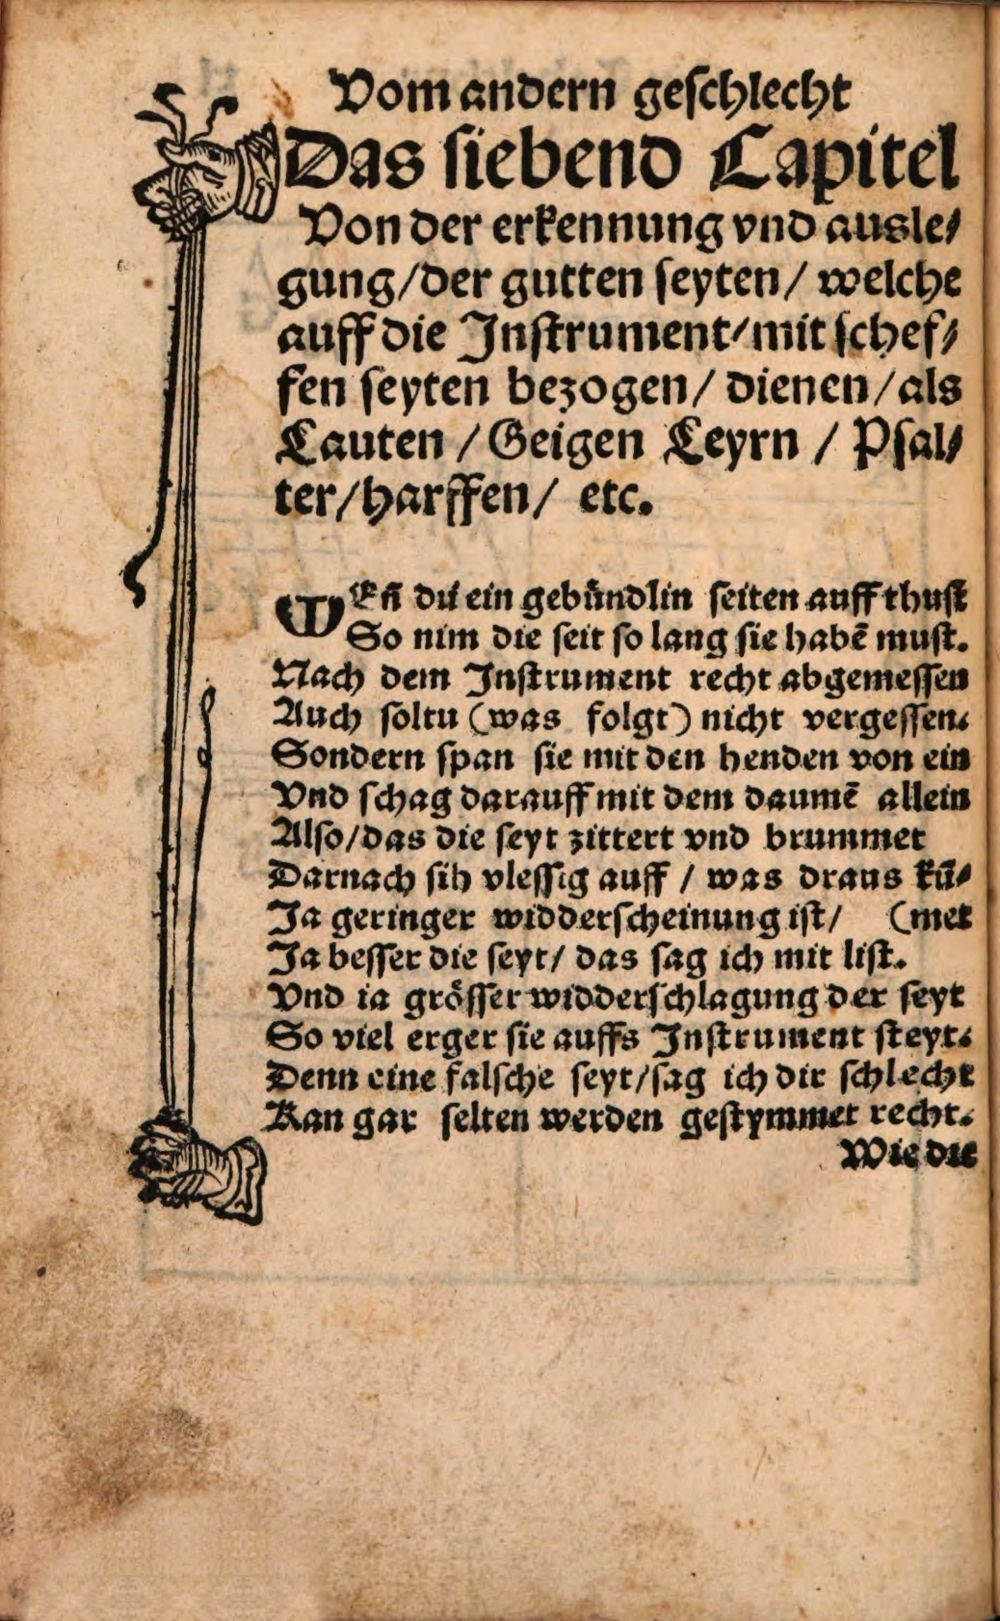 Vom andern geschlecht
Das siebend Capitel
Von der erkennung vnd ausle/
gung/der gutten seyten/ welche
auff die Instrument/mit schef/
fen seyten bezogen/ dienen/als
Lauten /Geigen Leyrn / Psal/
ter/harffen/ etc.
WEñ du ein gebündlin seiten auff thust
So nim die seit so lang sie habē must.
Nach dem Instrument recht abgemessen
Auch soltu (was folgt) nicht vergessen.
Sondern span sie mit den henden von ein
Vnd schag darauff mit dem daumē allein
Also/das die seyt zittert vnd brummet
Darnach sih vlessig auff / was draus kū/
Ja geringer widderscheinung ist/ (met
Ja besser die seyt/ das sag ich mit list.
Vnd ia grösser widderschlagung der seyt
So viel erger sie auffs Instrument steyt.
Denn eine falsche seyt/sag ich dir schlecht
Kan gar selten werden gestymmet recht.
Wie die